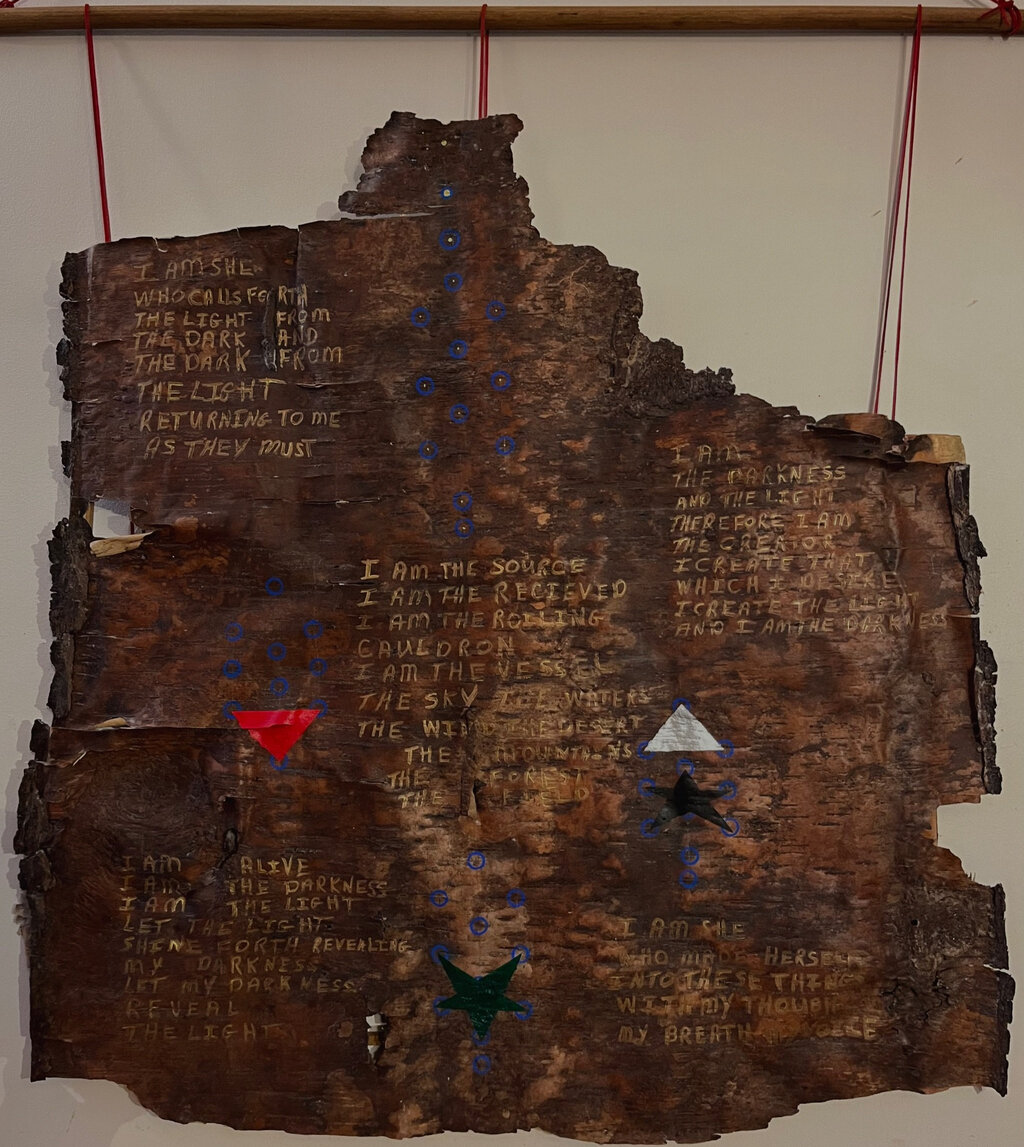 I AM SHE
WHO CALLS FORTH
THE LIGHT FROM
THE DARK AND
THE DARK FROM
THE LIGHT
RETURNING TO ME
AS THEY MUST
I AM
THE DARKNESS
AND THE LIGHT
THEREFORE I AM
THE CREATOR
I CREATE THAT
WHICH I DESIRE
I CREATE THE LIGHT
AND I AM THE DARKNESS
I AM THE SOURCE
I AM THE RECIEVED
I AM THE ROILING
CAULDRON
I AM THE VESSEL
THE SKY THE WATERS
THE WIND THE DESERT
THE MOUNTAINS
THE FOREST
THE FIELD
I AM ALIVE
I AM THE DARKNESS
I AM THE LIGHT
LET THE LIGHT
SHINE FORTH REVEALING
MY DARKNESS
LET MY DARKNESS
REVEAL
THE LIGHT
I AM SHE
WHO MADE HERSELF
INTO THESE THING
WITH MY THOUGHT
MY BREATH